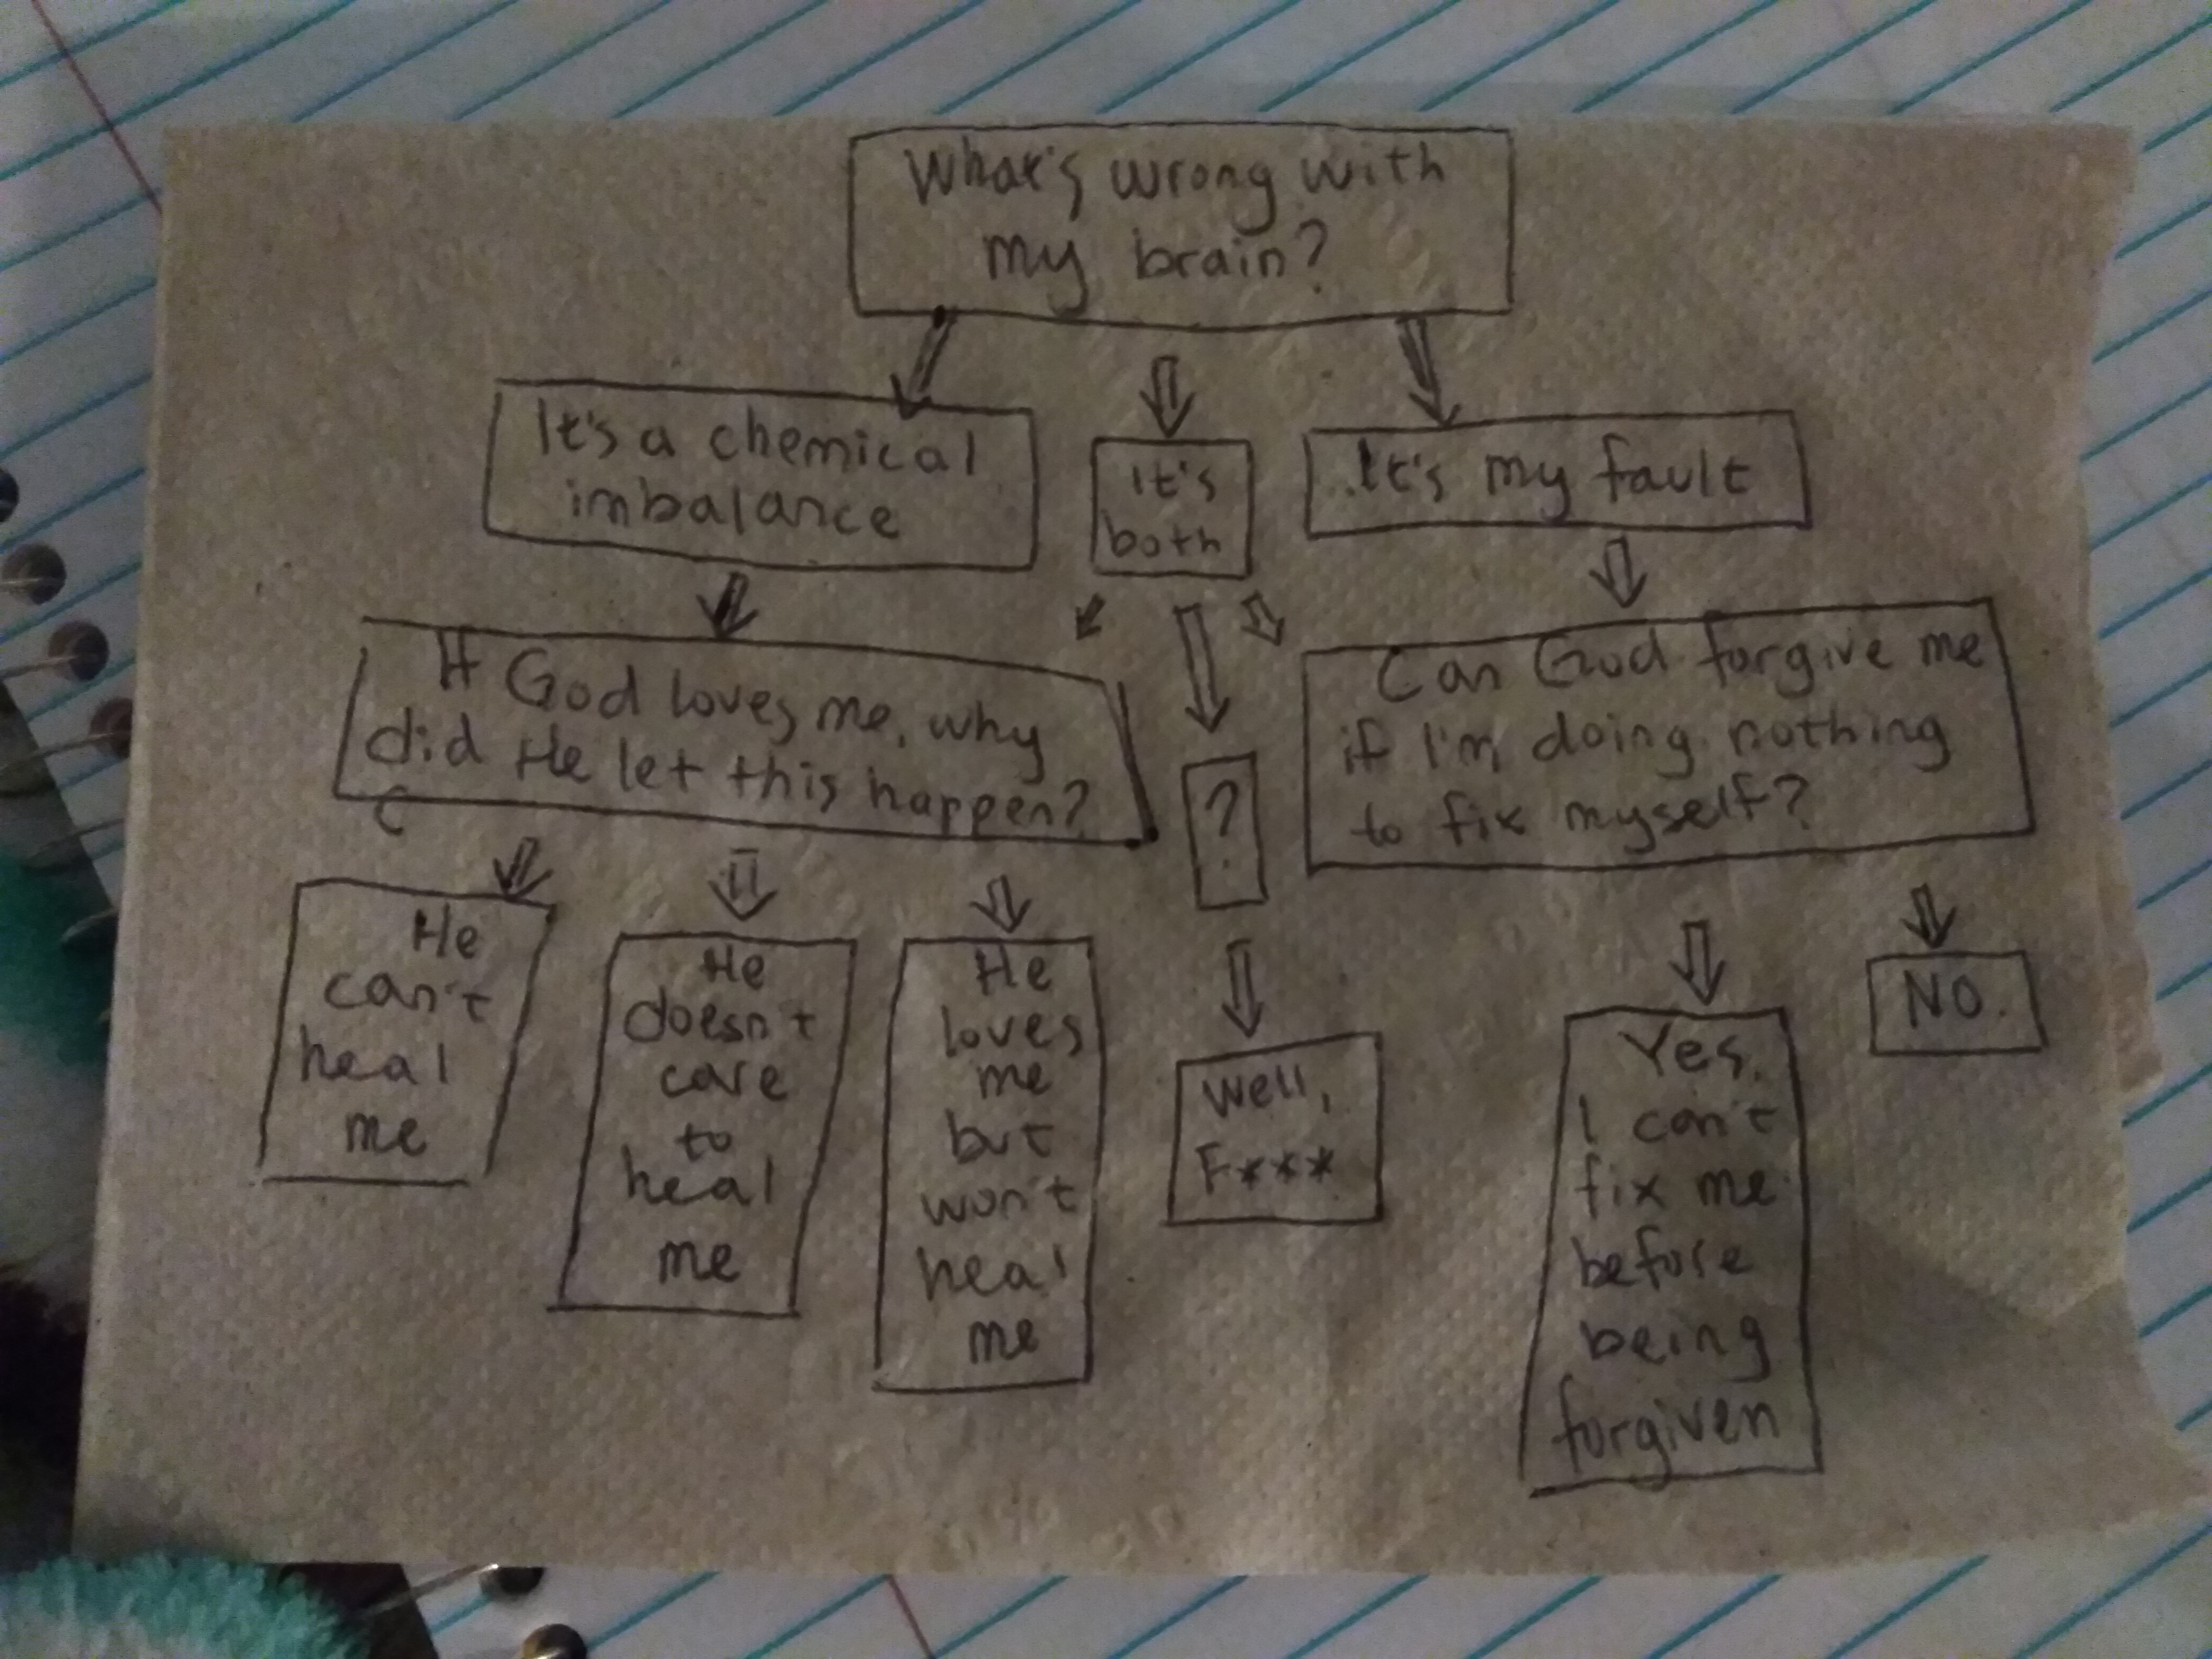 What's wrong with
my brain?
It's a chemical
imbalance
It's
both
It's my fault
If God loves me, why
did He let this happen?
?
Can God forgive me
if I'm doing nothing
to fix myself?
He
can't
heal
me
He
doesn't
care
to
heal
me
He
loves
me
but
won't
heal
me
Well,
F***
Yes.
I can't
fix me
before
being
forgiven
NO.